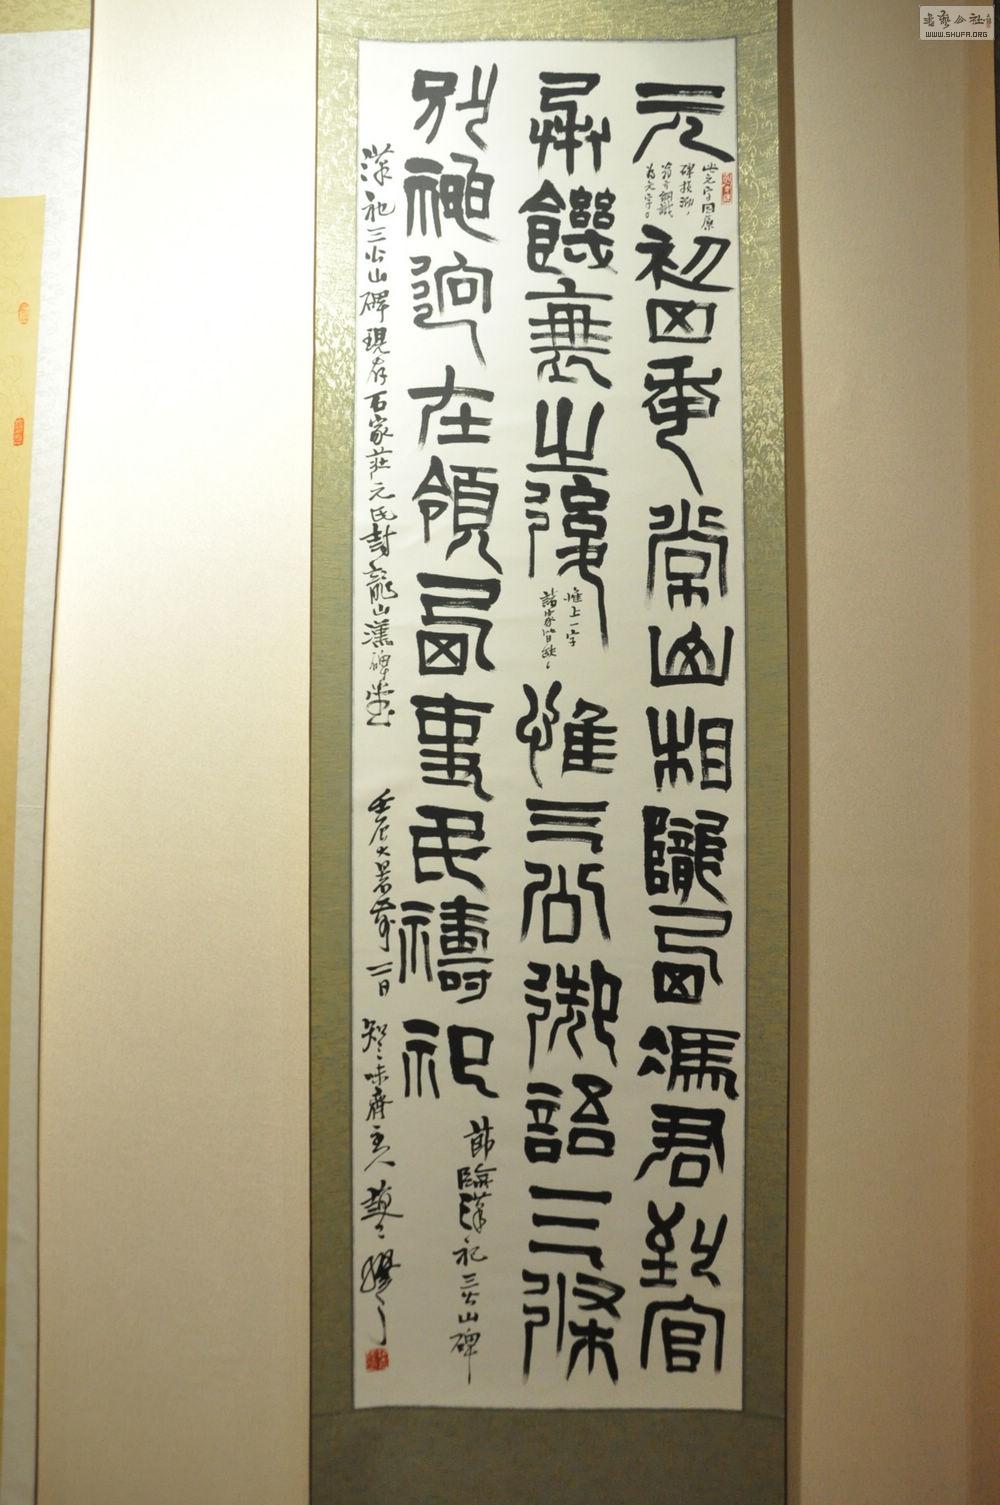 元初四年常山相隴西馮君到官
承饑衰之後惟三公御語三條
別神迥在領西吏民禱祀
此元字因原
碑損泐，
翁方綱識
為元字。
惟上一字
諸家皆缺、
節臨漢祀三公山碑
漢祀三公山碑現存石家莊元氏封龍山漢碑堂
壬辰大暑前二日
齋主人
WWW.SHUFA.ORG